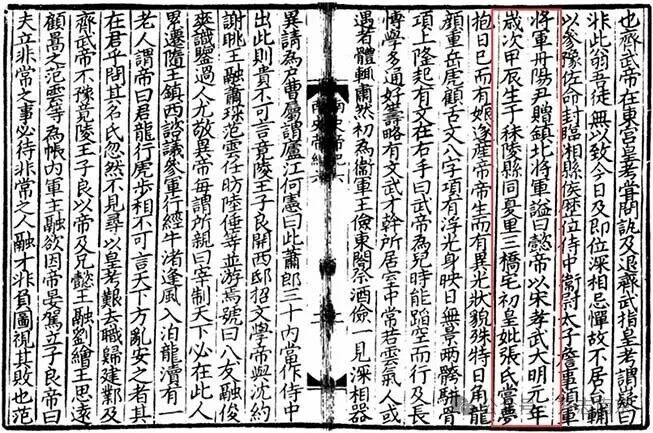 也齊武帝在東宮皇考嘗問訊及退齊武指皇考謂嶷曰
非此翁吾徒無以致今日及即位深相忌憚故不居台輔
以參豫佐命封臨湘縣侯歷位侍中衛尉太子詹事領軍
將軍丹陽尹贈鎮北將軍謚曰懿帝以宋孝武大明元年
歲次甲辰生于秣陵縣同夏里三橋宅初皇妣張氏嘗夢
抱日已而有娠遂產帝帝生而有異光狀貌殊特日角龍
顏重岳虎顧舌文八字項有浮光身映日無影兩骻駢骨
項上隆起有文在右手曰武帝為兒時能蹈空而行及長
博學多通好籌略有文武才幹所居室中常若雲氣人或
遇者體輒肅然初為衛軍王儉東閣祭酒儉一見深相器
異請為戶曹屬謂廬江何憲曰此蕭郎三十內當作侍中
出此則貴不可言竟陵王子良開西邸招文學帝與沈約
謝朓王融蕭琛范雲任昉陸倕等並游焉號曰八友融俊
爽識鑒過人尤敬異帝每謂所親曰宰制天下必在此人
累遷隨王鎮西諮議參軍行經牛渚逢風入泊龍瀆有一
老人謂帝曰君龍行虎步相不可言天下方亂安之者其
在君乎問其名氏忽然不見尋以皇考艱去職歸建鄴及
齊武帝不豫竟陵王子良以帝及兄懿王融劉繪王思遠
顧暠之范雲等為帳內軍主融欲因帝晏駕立子良帝曰
夫立非常之事必待非常之人融才非負圖視其敗也范